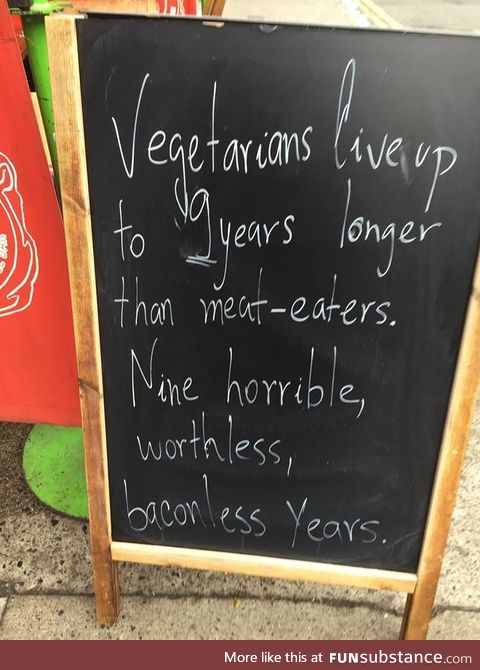 Vegetarians live up
to 9 years longer
than meat-eaters.
Nine horrible,
worthless,
baconless years.
More like this at FUNsubstance.com